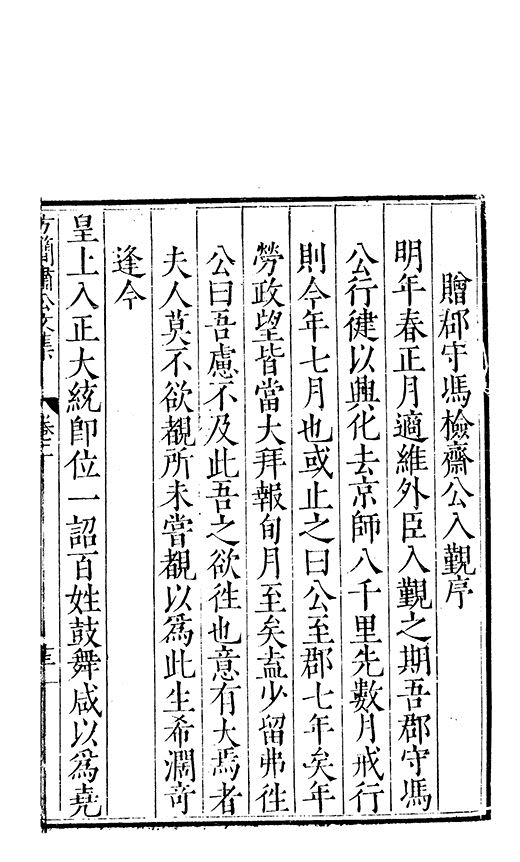 贈郡守馮檢齋公入覲序
明年春正月適維外臣入覲之期吾郡守馮
公行徤以興化去京師八千里先數月戒行
則今年七月也或止之曰公至郡七年矣年
勞政望皆當大拜報旬月至矣盍少留弗徃
公曰吾慮不及此吾之欲徃也意有大焉者
夫人莫不欲覩所未甞覩以爲此生希濶竒
逢今
皇上入正大統卽位一詔百姓鼓舞咸以爲堯
方簡肅公文集 卷之十